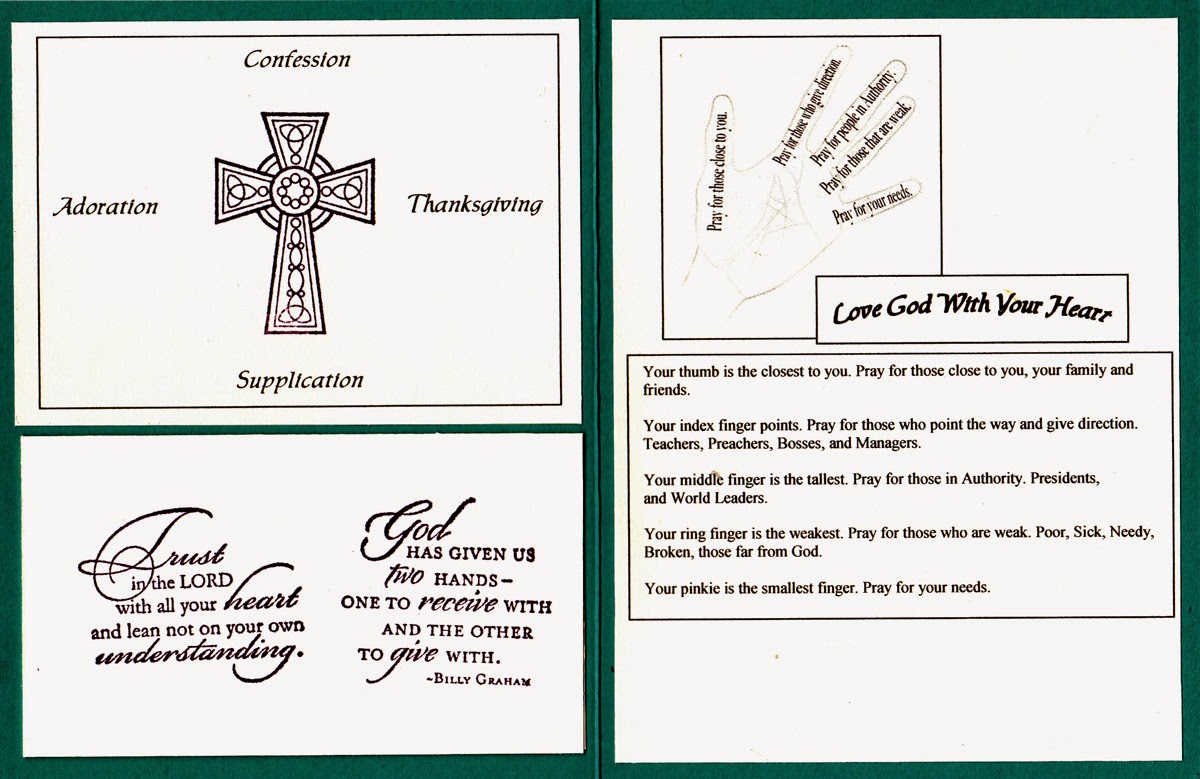 Confession
Adoration
Thanksgiving
Supplication
Trust
in the LORD
with all your heart
and lean not on your own
understanding.
God
HAS GIVEN US
two HANDS–
ONE TO receive WITH
AND THE OTHER
TO give WITH.
~BILLY GRAHAM
Pray for those close to you.
Pray for those who give direction.
Pray for people in Authority.
Pray for those that are weak.
Pray for your needs.
Love God With Your Heart
Your thumb is the closest to you. Pray for those close to you, your family and
friends.
Your index finger points. Pray for those who point the way and give direction.
Teachers, Preachers, Bosses, and Managers.
Your middle finger is the tallest. Pray for those in Authority. Presidents,
and World Leaders.
Your ring finger is the weakest. Pray for those who are weak. Poor, Sick, Needy,
Broken, those far from God.
Your pinkie is the smallest finger. Pray for your needs.